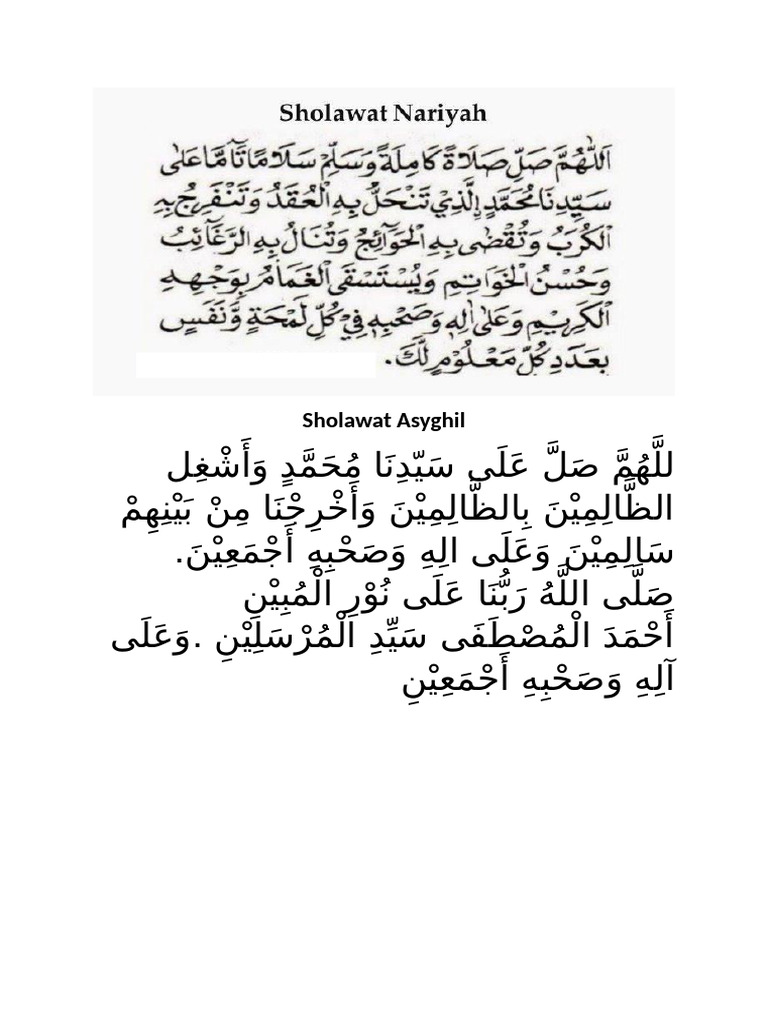 Sholawat Nariyah
اَللّٰهُمَّ صَلِّ صَلَاةً كَامِلَةً وَسَلِّمْ سَلَامًا تَآمًّا عَلٰى
سَيِّدِنَا مُحَمَّدٍ الَّذِيْ تَنْحَلُّ بِهِ الْعُقَدُ وَتَنْفَرِجُ بِهِ
الْكُرَبُ وَتُقْضٰى بِهِ الْحَوَآئِجُ وَتُنَالُ بِهِ الرَّغَآئِبُ
وَحُسْنُ الْخَوَاتِمِ وَيُسْتَسْقَى الْغَمَامُ بِوَجْهِهِ
الْكَرِيْمِ وَعَلٰى اٰلِهٖ وَصَحْبِهٖ فِيْ كُلِّ لَمْحَةٍ وَّنَفَسٍ
بِعَدَدِ كُلِّ مَعْلُوْمٍ لَّكَ.
Sholawat Asyghil
للَّهُمَّ صَلَّ عَلَى سَيّدِنَا مُحَمَّدٍ وَأَشْغِل
الظَّالِمِيْنَ بِالظَّالِمِيْنَ وَأَخْرِجْنَا مِنْ بَيْنِهِمْ
سَالِمِيْنَ وَعَلَى الِهِ وَصَحْبِهِ أَجْمَعِيْنَ.
صَلَّى اللَّهُ رَبُّنَا عَلَى نُوْرِ الْمُبِيْنِ
أَحْمَدَ الْمُصْطَفَى سَيِّدِ الْمُرْسَلِيْنِ .وَعَلَى
آلِهِ وَصَحْبِهِ أَجْمَعِيْنِ